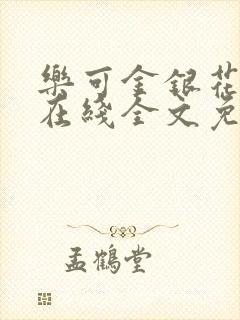 樂可金銀花
在綫全文免
孟鶴堂